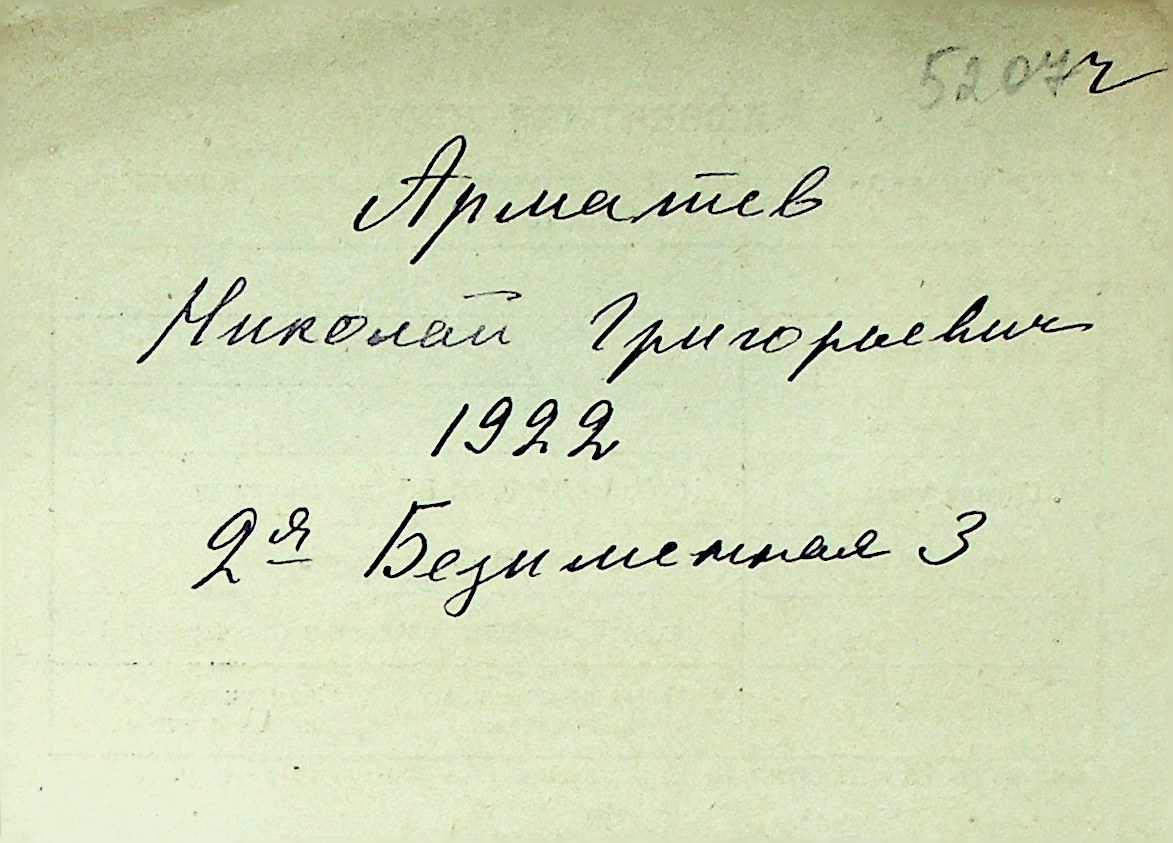 5207ч
Арматев
Николай Григорьевич
1922
2я Безименная 3